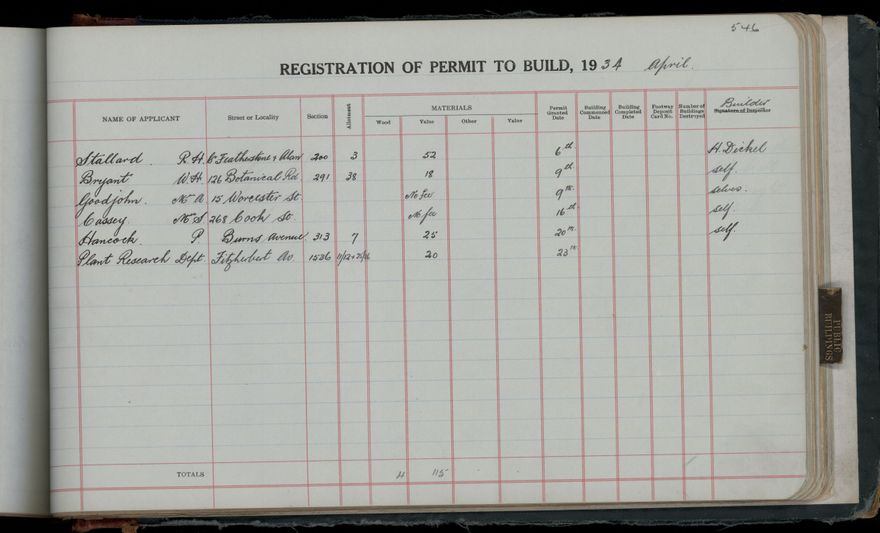 546
REGISTRATION OF PERMIT TO BUILD, 1934 April.
NAME OF APPLICANT Street or Locality Section Allotment MATERIALS Wood Value Other Value Permit Granted Date Building Commenced Date Building Completed Date Footway Deposit Card No. Number of Buildings Destroyed Builder Signature of Inspector
Stallard R.H. C Featherstone & Alan 200 3 52 6th H. Dickel
Bryant W.H. 126 Botanical Rd 291 38 18 9th self.
Goodjohn. Mr A 15 Worcester St No fee 9th selves.
Cassey. 268 Cook St. No fee 16th self.
Hancock. P. Burns Avenue 313 7 25 20th self.
Plant Research Dept. Fitzherbert Av 1536 20 23rd
TOTALS 4 115
PUBLIC BUILDINGS